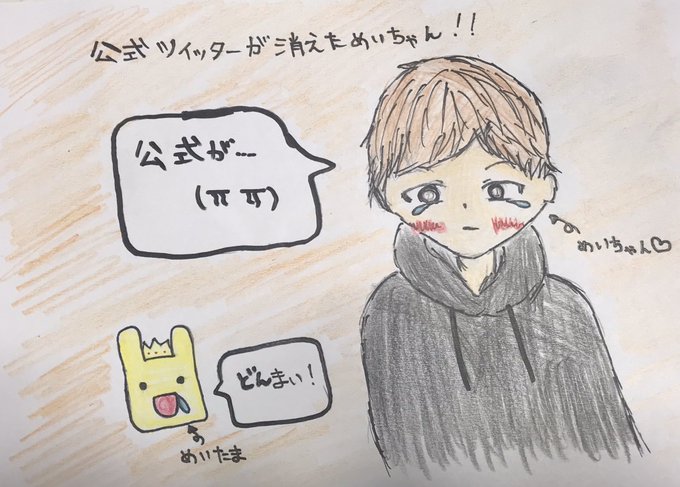 公式ツイッターが消えためいちゃん!!
公式が...
(π π)
めいちゃん♡
どんまい!
めいたま